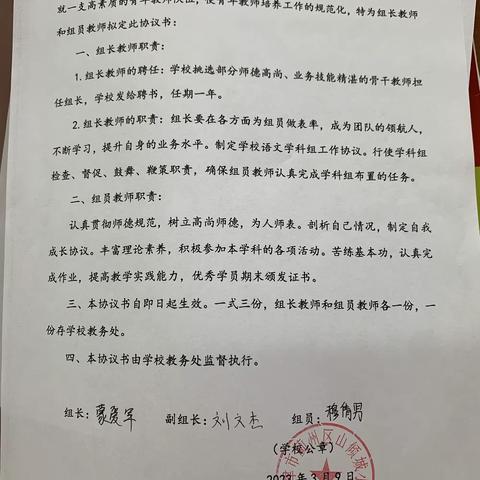 就一支高素质的青年教师队伍，使青年教师培养工作的规范化，特为组长教师
和组员教师拟定此协议书：
一、组长教师职责：
1.组长教师的聘任：学校挑选部分师德高尚、业务技能精湛的骨干教师担
任组长，学校发给聘书，任期一年。
2.组长教师的职责：组长要在各方面为组员做表率，成为团队的领航人，
不断学习，提升自身的业务水平。制定学校语文学科组工作协议。行使学科组
检查、督促、鼓舞、鞭策职责，确保组员教师认真完成学科组布置的任务。
二、组员教师职责：
认真贯彻师德规范，树立高尚师德，为人师表。剖析自己情况，制定自我
成长协议。丰富理论素养，积极参加本学科的各项活动。苦练基本功，认真完
成作业，提高教学实践能力，优秀学员期末颁发证书。
三、本协议书自即日起生效。一式三份，组长教师和组员教师各一份，一
份存学校教务处。
四、本协议书由学校教务处监督执行。
组长：蒙爱军 副组长：刘文杰 组员：穆倩男
（学校公章）
州区山倾城
2023年3月9日